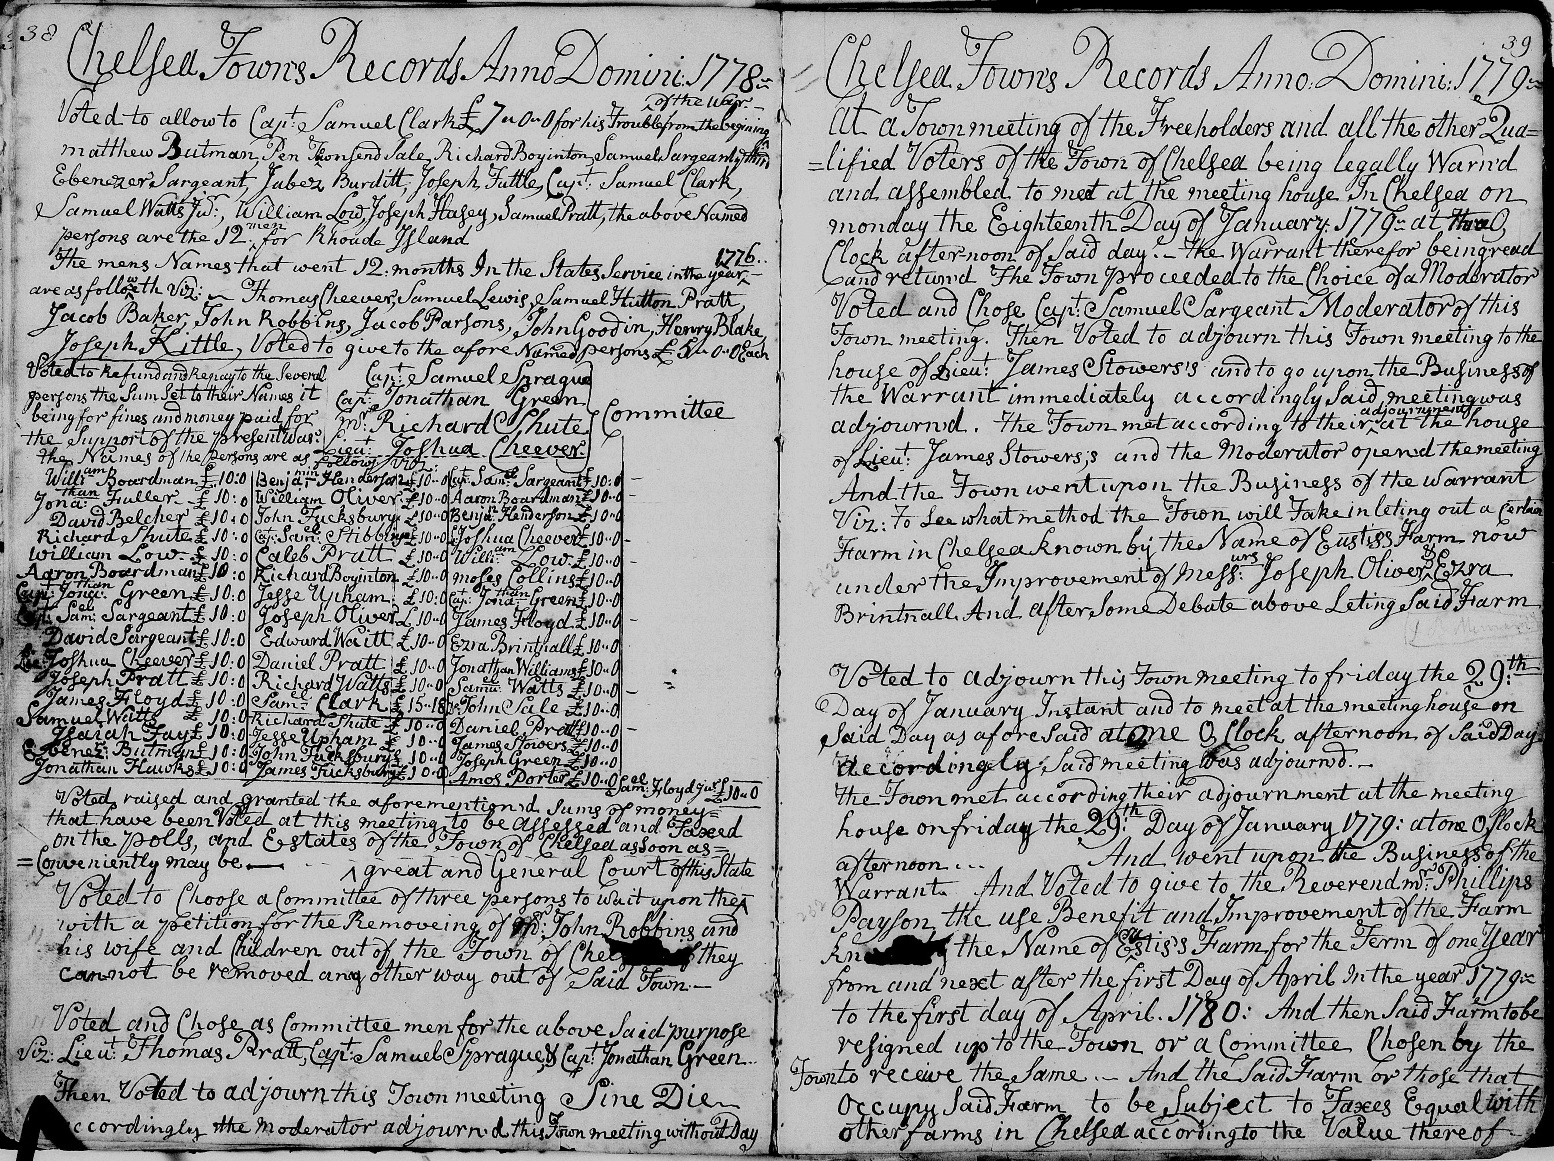 38
Chelsea Towns Records Anno Domini: 1778
of the war
Voted to allow to Capt: Samuel Clark £7"0"0 for his Trouble from the begining
matthew Butman, Pen Townsend Sale, Richard Boyinton, Samuel Sargeant
Ebenezer Sargeant, Jabez Burditt, Joseph Tuttle, Capt: Samuel Clark,
Samuel Watts Junr:, William Low, Joseph Hasey, Samuel Pratt, the above Named
persons are the 12 men for Rhoade Island
The mens Names that went 12 months In the States Service in the year 1776
are as followeth Viz: Thomas Cheever, Samuel Lewis, Samuel Hutton Pratt
Jacob Baker, John Robbins, Jacob Parsons, John Goodin, Henry Blake
Joseph Kittle, Voted to give to the afore Named persons £5"0"0 Each
Voted to Refund and Repay to the Several
persons the Sum Set to their Names it
being for fines and money paid for
the Support of the present war:
the Names of the persons are as follows viz:
Capt: Samuel Sprague
Capt: Jonathan Green
mr Richard Shute
Lieut: Joshua Cheever
Committee
William Boardman £10:0
Jonathan Fuller £10:0
David Belcher £10:0
Richard Shute £10:0
William Low £10:0
Aaron Boardman £10:0
Capt: Jonathan Green £10:0
Capt: Samel: Sargeant £10:0
David Sargeant £10:0
Lieut Joshua Cheever £10:0
Joseph Pratt £10:0
James Floyd £10:0
Samuel Watts 10:0
Isaiah Fay £10:0
Ebenez: Butman £10:0
Jonathan Hawks £10:0
Benjamin Henderson £10"0
William Oliver £10"0
John Tucksbury £10"0
Capt: Sam: Stibbins £10"0
Caleb Pratt £10"0
Richard Boyinton £10"0
Jesse Upham £10"0
Joseph Oliver £10"0
Edward Waitt £10"0
Daniel Pratt £10"0
Richard Watts £10"0
Samel Clark £15"18
Richard Shute £10"0
Jesse Upham 10"0
John Tucksbury 10"0
James Tucksbury £10"0
Capt: Saml: Sargeant £10:0
Aaron Boardman £10"0
Benja: Henderson £10"0
Joshua Cheever £10"0
William Low £10"0
moses Collins £10"0
Capt: Jonathan Green £10"0
James Floyd £10"0
Ezra Brintnall £10"0
Jonathan Williams £10"0
Samuel Watts £10"0
John Sale £10"0
Daniel Pratt £10"0
James Stowers £10"0
Joseph Green £10"0
Amos Porter £10"0
Samel: Floyd Junr £10"0
Voted raised and granted the aforementiond Sums of money
that have been Voted at this meeting to be assessed and Taxed
on the polls, and Estates of the Town of Chelsea as soon as
Conveniently may be great and General Court of this State
Voted to Choose a Committee of three persons to wait upon the
with a petition for the Removeing of mr: John Robbins and
his wife and Children out of the Town of Chel they
cannot be removed any other way out of Said Town:
Voted and Chose as Committee men for the above Said purpose
Viz: Lieut: Thomas Pratt, Capt: Samuel Sprague, & Capt: Jonathan Green
Then Voted to adjourn this Town meeting Sine Die
ccordingly the moderator adjournd this Town meeting without Day
39
Chelsea Towns Records Anno: Domini: 1779
At a Town meeting of the Freeholders and all the other Qua=
=lified Voters of the Town of Chelsea being legally Warnd
and assembled to meet at the meeting house In Chelsea on
monday the Eighteenth Day of January 1779 at Two O,
Clock afternoon of Said day: the Warrant therefor being read
and returnd The Town proceeded to the Choice of a Moderator
Voted and Chose Capt: Samuel Sargeant Moderator of this
Town meeting. Then Voted to adjourn this Town meeting to the
house of Lieut: James Stowers's and to go upon the Business of
the Warrant immediately accordingly Said meeting was
adjournd. the Town met according to their adjournment at the house
of Lieut: James Stowers,s and the Moderator opened the meeting
And the Town went upon the Business of the Warrant
Viz: To See what method the Town will Take in leting out a Certain
Farm in Chelsea known by the Name of Eustiss Farm now
under the Improvement of Messurs: Joseph Oliver & Ezra
Brintnall And after Some Debate above Leting Said Farm
Voted to adjourn this Town meeting to friday the 29:th
Day of January Instant and to meet at the meeting house on
Said Day as aforesaid at one O,Clock afternoon, of Said Day
accordingely Said meeting was adjournd.
the Town met according their adjournment at the meeting
house on friday the 29:th Day of January 1779: at one O,Clock
afternoon... And went upon the Business of the
Warrant. And Voted to give to the Reverend mr: Phillips
Payson the use Benefit and Improvement of the Farm
kn the Name of Eustis's Farm for the Term of one Year
from and next after the first Day of April In the year 1779
to the first day of April. 1780: And then Said Farm to be
resigned up to the Town or a Committee Chosen by the
Town to receive the Same. And the Said Farm or those that
Occupy Said Farm to be Subject to Taxes Equal with
other farms in Chelsea according to the Value thereof